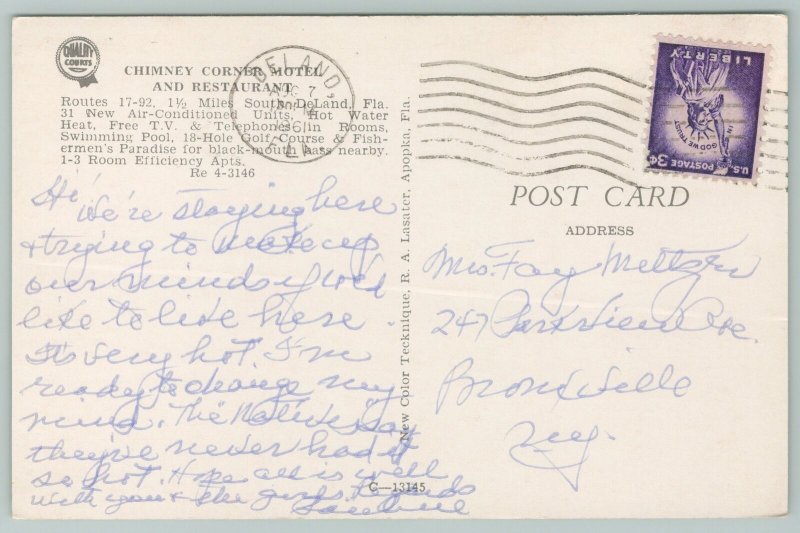 QUALITY
COURTS
CHIMNEY CORNER MOTEL
AND RESTAURANT
Routes 17-92, 1½ Miles South DeLand, Fla.
31 New Air-Conditioned Units, Hot Water
Heat, Free T.V. & Telephones in Rooms,
Swimming Pool, 18-Hole Golf Course & Fish-
ermen's Paradise for black-mouth bass nearby.
1-3 Room Efficiency Apts.
Re 4-3146
Hi
We're staying here
& trying to make up
our minds if we'd
like to live here.
It's very hot. I'm
ready to change my
mind. The Natives say
they've never had it
so hot. Hope all is well
with you & the girls.
C—13145
New Color Tecknique, R. A. Lasater, Apopka, Fla.
DELAND,
AUG 7
1961
FLA.
LIBERTY
IN GOD WE TRUST
U.S. POSTAGE 3¢
POST CARD
ADDRESS
Mrs. Fay Meltzer
247 Parkview Ave.
Bronxville
N.Y.